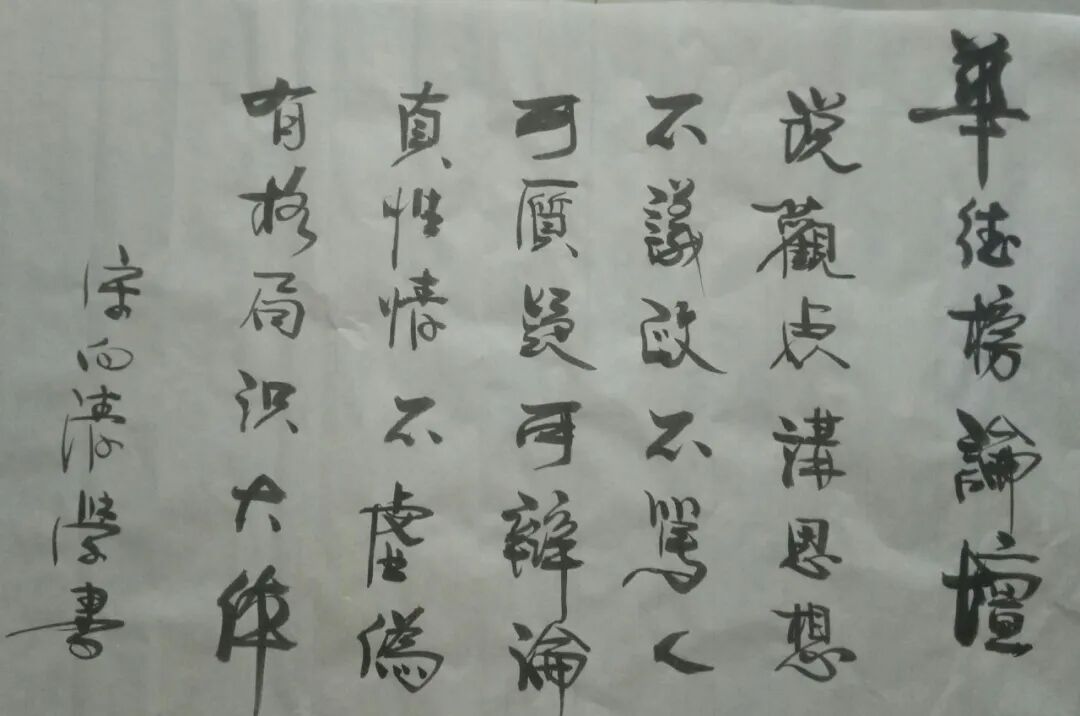 華德榜論壇
説觀点講思想
不議政不罵人
可質疑可辯論
真性情不虛偽
有格局识大体
宋向清學書